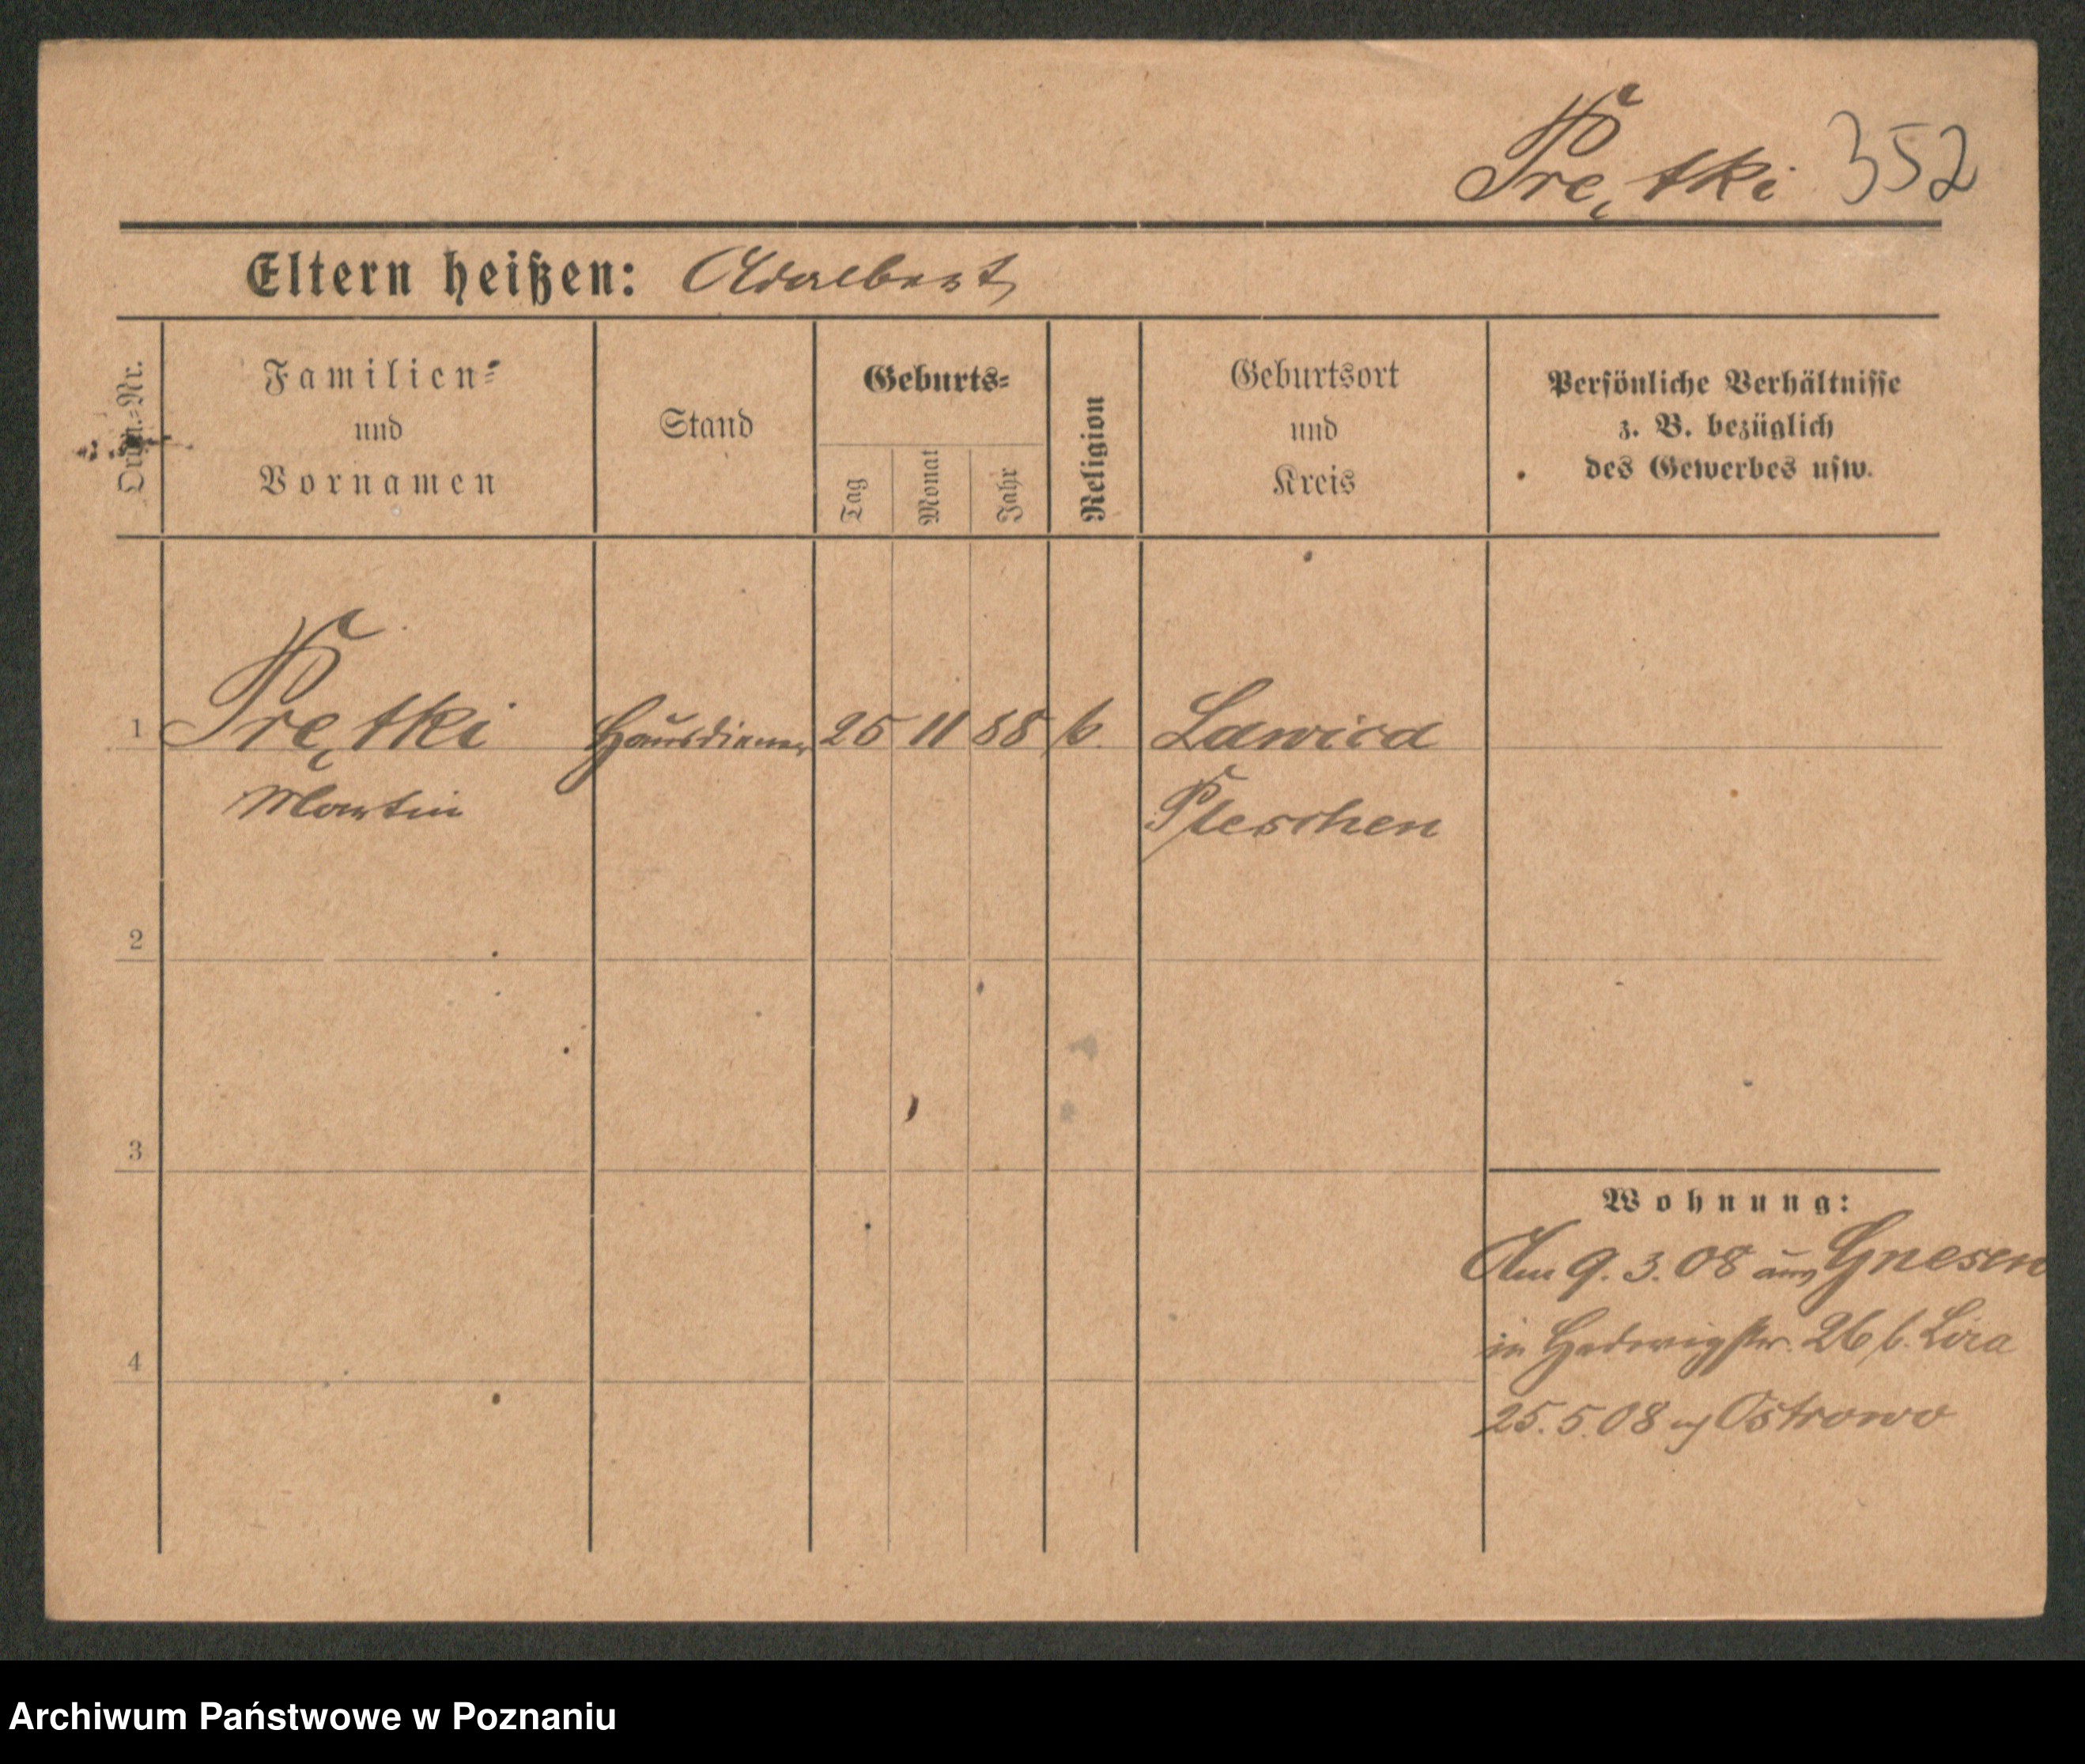 Prętki 352
Eltern heißen: Adalbert
Ordn.-Nr.
Familien-
und
Vornamen
Stand
Geburts-
Tag
Monat
Jahr
Religion
Geburtsort
und
Kreis
Persönliche Verhältnisse
z. B. bezüglich
des Gewerbes usw.
1 Prętki Hausdiener 25 11 88 k. Lawica
Martin Pleschen
2
3
4
Wohnung:
Am 9. 3. 08 aus Gnesen
in Hedwigstr. 26 b. Lira
25. 5. 08 Ostrowo
Archiwum Państwowe w Poznaniu